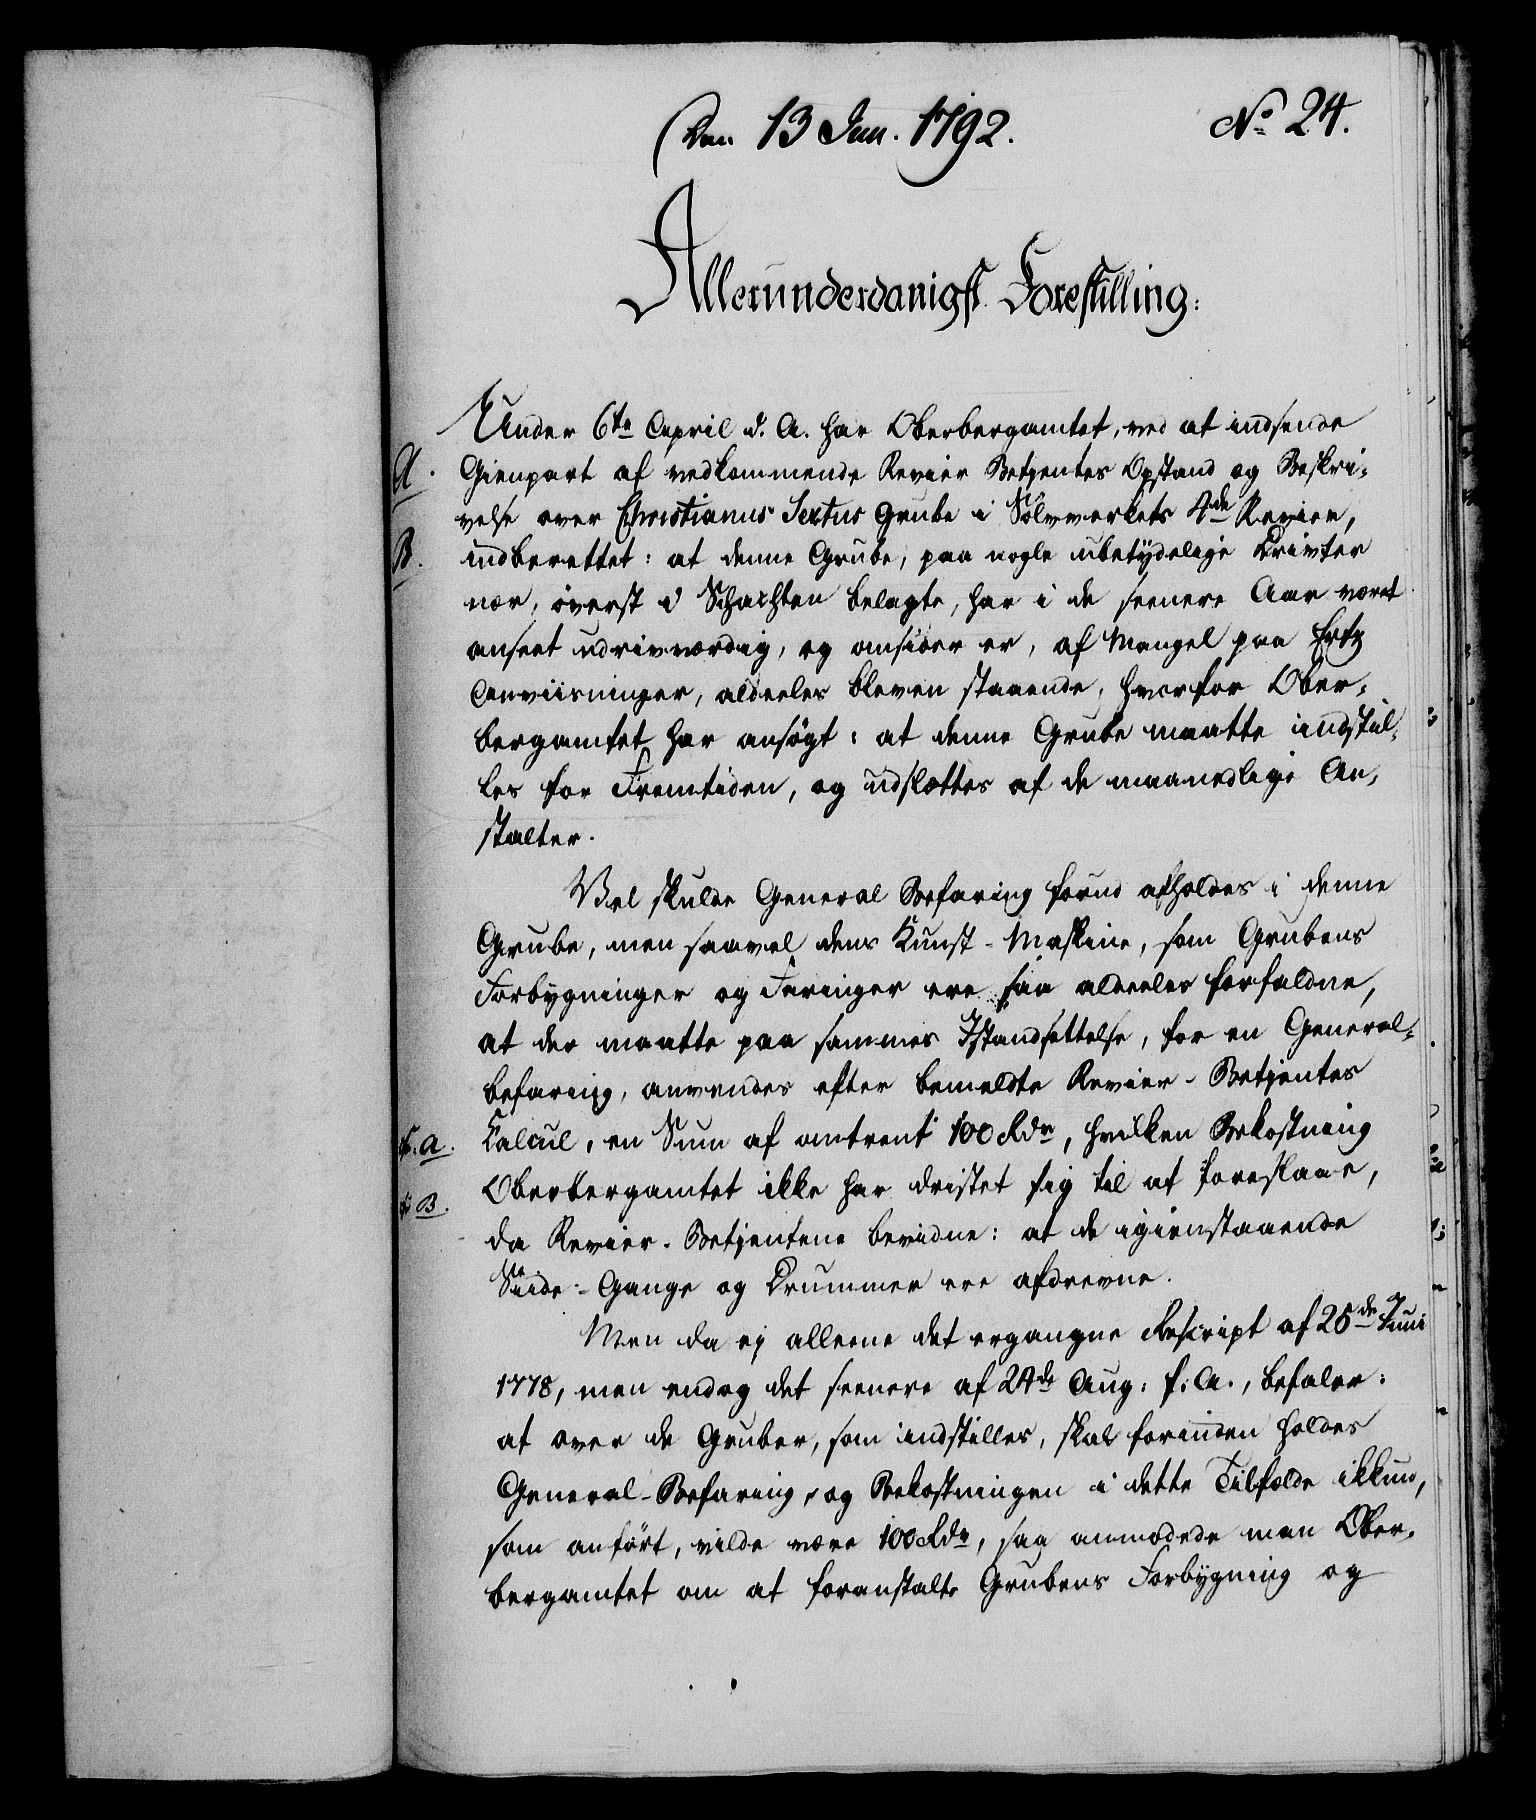 Den 13 Jun. 1792.
No 24.
Allerunderdanigst Forestilling:
Under 6te April d. A. har Oberbergamtet, ved at indsende
A. Gienpart af vedkommende Revier Betjentes Opstand og Beskri-
velse over Christianus Sextus Grube i Sølvverkets 4de Revier,
B. indberettet: at denne Grube, paa nogle ubetydelige Drivter
nær, øverst i Schachten belagte, har i de seenere Aar været
anseet udrivværdig, og omsider er, af Mangel paa Ertz
Anviisninger, aldeeles bleven staaende, hvorfor Ober-
bergamtet har ansøgt: at denne Grube maatte indstil-
les for Fremtiden, og udslettes af de maanedlige An-
stalter.
Vel skulde General Befaring forud afholdes i denne
Grube, men saavel dens Kunst-Maskine, som Grubens
Forbygninger og Faringer ere saa aldeeles forfaldne,
at der maatte paa sammes Istandsettelse, for en General-
befaring, anvendes efter bemeldte Revier-Betjentes
A. Calcul, en Sum af omtrent 100 Rdr, hvilken Bekostning
B. Oberbergamtet ikke har dristet sig til at foreslaae,
da Revier-Betjentene bevidne: at de igienstaaende
Siide-Gange og Drummer ere afdrevne.
Men da ej alleene det ergangne Rescript af 25de Juni
1778, men endog det seenere af 24de Aug: f. A., befaler:
at over de Gruber, som indstilles, skal forinden holdes
General-Befaring, og Bekostningen i dette Tilfælde ikkun,
som anført, vilde være 100 Rdr, saa anmodede man Ober-
bergamtet om at foranstalte Grubens Forbygning og